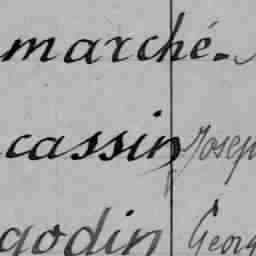 marché
cassin Joseph
godin Georg